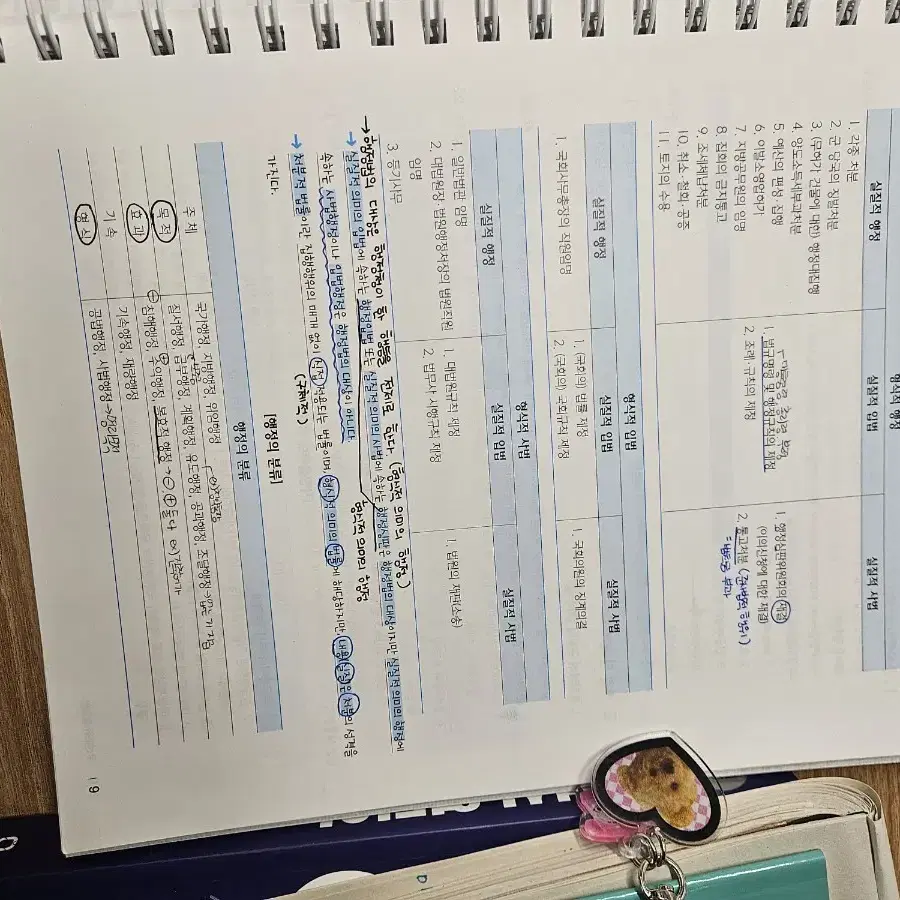 형식적 행정
실질적 행정 실질적 입법 실질적 사법
1. 각종 처분
2. 군 당국의 징발처분
3. (무허가 건물에 대한) 행정대집행
4. 양도소득세부과처분
5. 예산의 편성·집행
6. 이발소영업허가
7. 지방공무원의 임명
8. 집회의 금지통고
9. 조세체납처분
10. 취소·철회·공증
11. 토지의 수용
1. 법규명령 및 행정규칙의 제정
2. 조례·규칙의 제정
1. 행정심판위원회의 재결
(이의신청에 대한 재결)
2. 통고처분 (준사법적 행위)
= 범칙금 부과
형식적 입법
실질적 행정 실질적 입법 실질적 사법
1. 국회사무총장의 직원임명
1. (국회의) 법률 제정
2. (국회의) 국회규칙 제정
1. 국회의원의 징계의결
형식적 사법
실질적 행정 실질적 입법 실질적 사법
1. 일반법관 임명
2. 대법원장·법원행정처장의 법원직원
임명
3. 등기사무
1. 대법원규칙 제정
2. 법무사 시행규칙 제정
1. 법원의 재판(소송)
→ 행정법의 대상은 행정청이 한 행동을 전제로 한다 (형식적 의미의 행정)
→ 실질적 의미의 입법에 속하는 행정입법 또는 실질적 의미의 사법에 속하는 행정심판은 행정법의 대상이지만 실질적 의미의 행정에
형식적 의미의 행정
속하는 사법행정이나 입법행정은 행정법의 대상이 아니다.
(구체적)
→ 처분적 법률이란 집행행위의 매개 없이 직접 적용되는 법률이며, 형식적 의미의 법률에 해당하지만, 내용(실질)은 처분의 성격을
가지다.
[행정의 분류]
행정의 분류
주체 국가행정, 자치행정, 위임행정
목적 질서행정, 급부행정, 계획행정, 유도행정, 공과행정, 조달행정
효과 침해행정, 수익행정, 복효적 행정
기속 기속행정, 재량행정
형식 공법행정, 사법행정
19